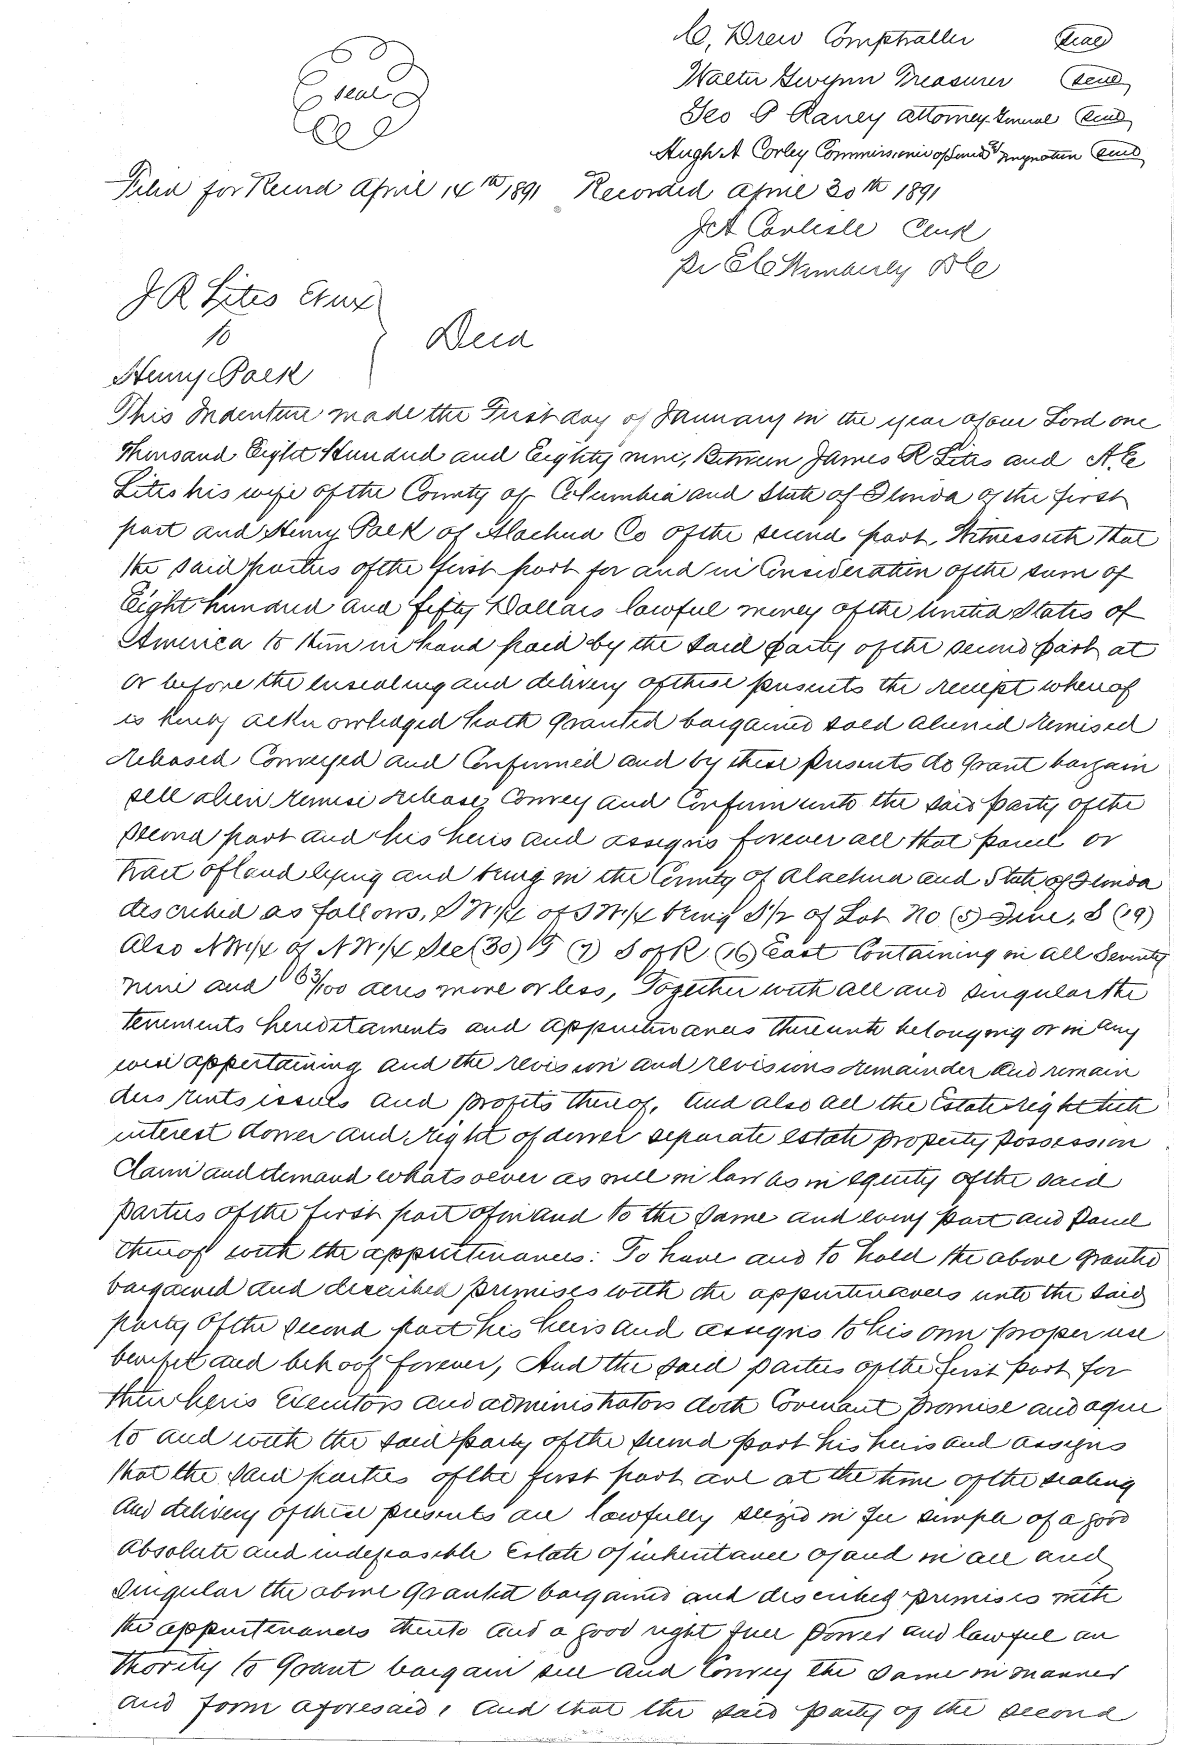 C, Drew Comptroller seal
seal
Walter Gwynn Treasurer seal
Geo P Raney attorney General seal
Hugh A Corley Commissioner of Lands & Imgration seal
Filed for Record April 14th 1891 Recorded April 30th 1891
J A Carlisle Clerk
Pr E C Wimberly D C
J R Lites Et ux
to
Deed
Henry Polk
This Indenture made the First day of January in the year of our Lord one
thousand Eight Hundred and Eighty nine, Between James R Lites and A. E
Lites his wife of the County of Columbia and State of Florida of the first
part and Henry Polk of Alachua Co of the second part, Witnesseth that
the said parties of the first part for and in Consideration of the sum of
Eight hundred and fifty Dollars lawful money of the United States of
America to him in hand paid by the said party of the second part at
or before the ensealing and delivery of these presents the receipt whereof
is hereby acknowledged hath granted bargained sold aliened remised
released Conveyed and Confirmed and by these presents do grant bargain
sell alien remise release, Convey and Confirm unto the said party of the
second part and his heirs and assigns forever all that parcel or
tract of land lying and being in the County of Alachua and State of Florida
described as follows, S W 1/4 of S W 1/4 being S 1/2 of Lot No (5) Five, S (19)
Also N W 1/4 of N W 1/4 Sec (30) T (7) S of R (16) East Containing in all Seventy
nine and 63/100 acres more or less, Together with all and singular the
tenements hereditaments and appurtenances thereunto belonging or in any
wise appertaining and the revision and revisions remainder and remain
ders rents issues and profits thereof, And also all the Estate right title
interest dower and right of dower separate estate property possession
Claim and demand whatsoever as well in law as in equity of the said
parties of the first part of in and to the same and every part and parcel
thereof with the appurtenances: To have and to hold the above granted
bargained and described premises with the appurtenances unto the said
party of the second part his heirs and assigns to his own proper use
benefit and behoof forever, And the said parties of the first part for
their heirs Executors and administrators doth Covenant promise and agree
to and with the said party of the second part his heirs and assigns
that the said parties of the first part are at the time of the sealing
and delivery of these presents are lawfully seized in fee simple of a good
absolute and indefeasible Estate of inheritance of and in all and
singular the above granted bargained and described premises with
the appurtenances thereto and a good right full power and lawful au
thority to grant bargain sell and Convey the same in manner
and form aforesaid, And that the said party of the second